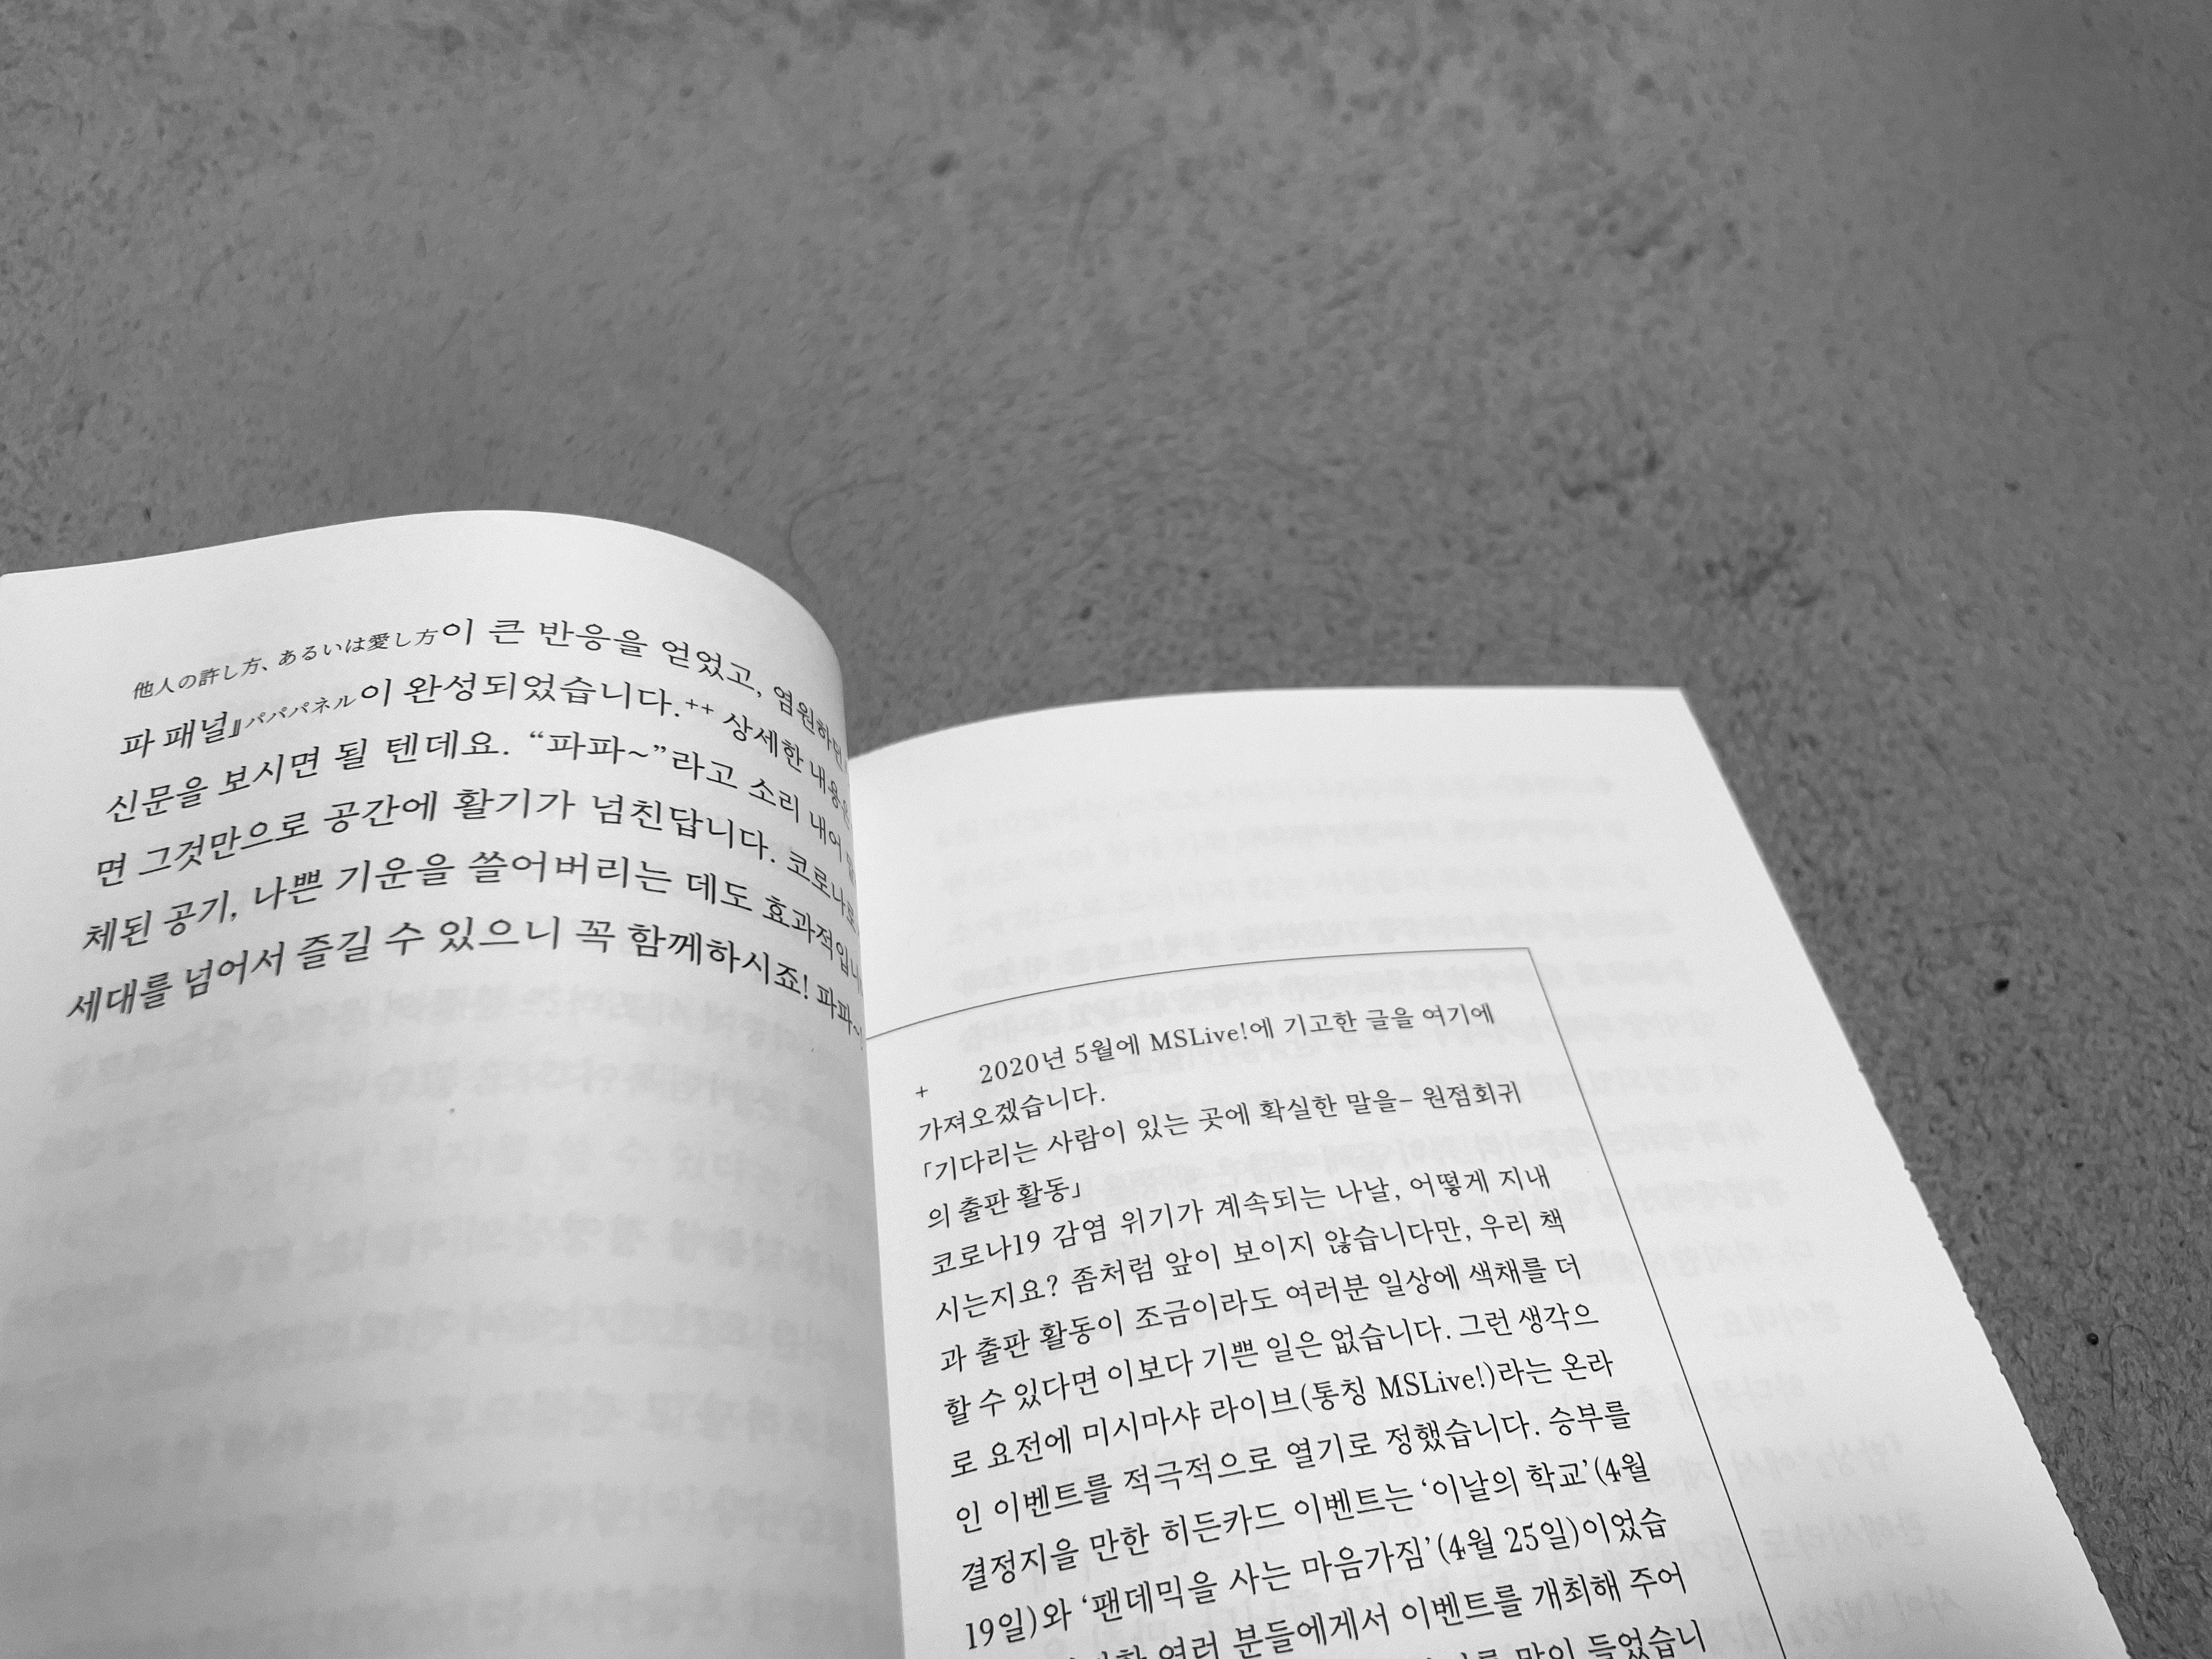 他人の許し方、あるいは愛し方이 큰 반응을 얻었고, 염원하던
파 패널』パパパネル이 완성되었습니다.++ 상세한 내용은
신문을 보시면 될 텐데요. “파파~”라고 소리 내어
면 그것만으로 공간에 활기가 넘친답니다. 코로나로
체된 공기, 나쁜 기운을 쓸어버리는 데도 효과적입니
세대를 넘어서 즐길 수 있으니 꼭 함께하시죠! 파파~!
+ 2020년 5월에 MSLive!에 기고한 글을 여기에
가져오겠습니다.
「기다리는 사람이 있는 곳에 확실한 말을– 원점회귀
의 출판 활동」
코로나19 감염 위기가 계속되는 나날, 어떻게 지내
시는지요? 좀처럼 앞이 보이지 않습니다만, 우리 책
과 출판 활동이 조금이라도 여러분 일상에 색채를 더
할 수 있다면 이보다 기쁜 일은 없습니다. 그런 생각으
로 요전에 미시마샤 라이브(통칭 MSLive!)라는 온라
인 이벤트를 적극적으로 열기로 정했습니다. 승부를
결정지을 만한 히든카드 이벤트는 ‘이날의 학교’(4월
19일)와 ‘팬데믹을 사는 마음가짐’(4월 25일)이었습
여러 분들에게서 이벤트를 개최해 주어
많이 들었습니